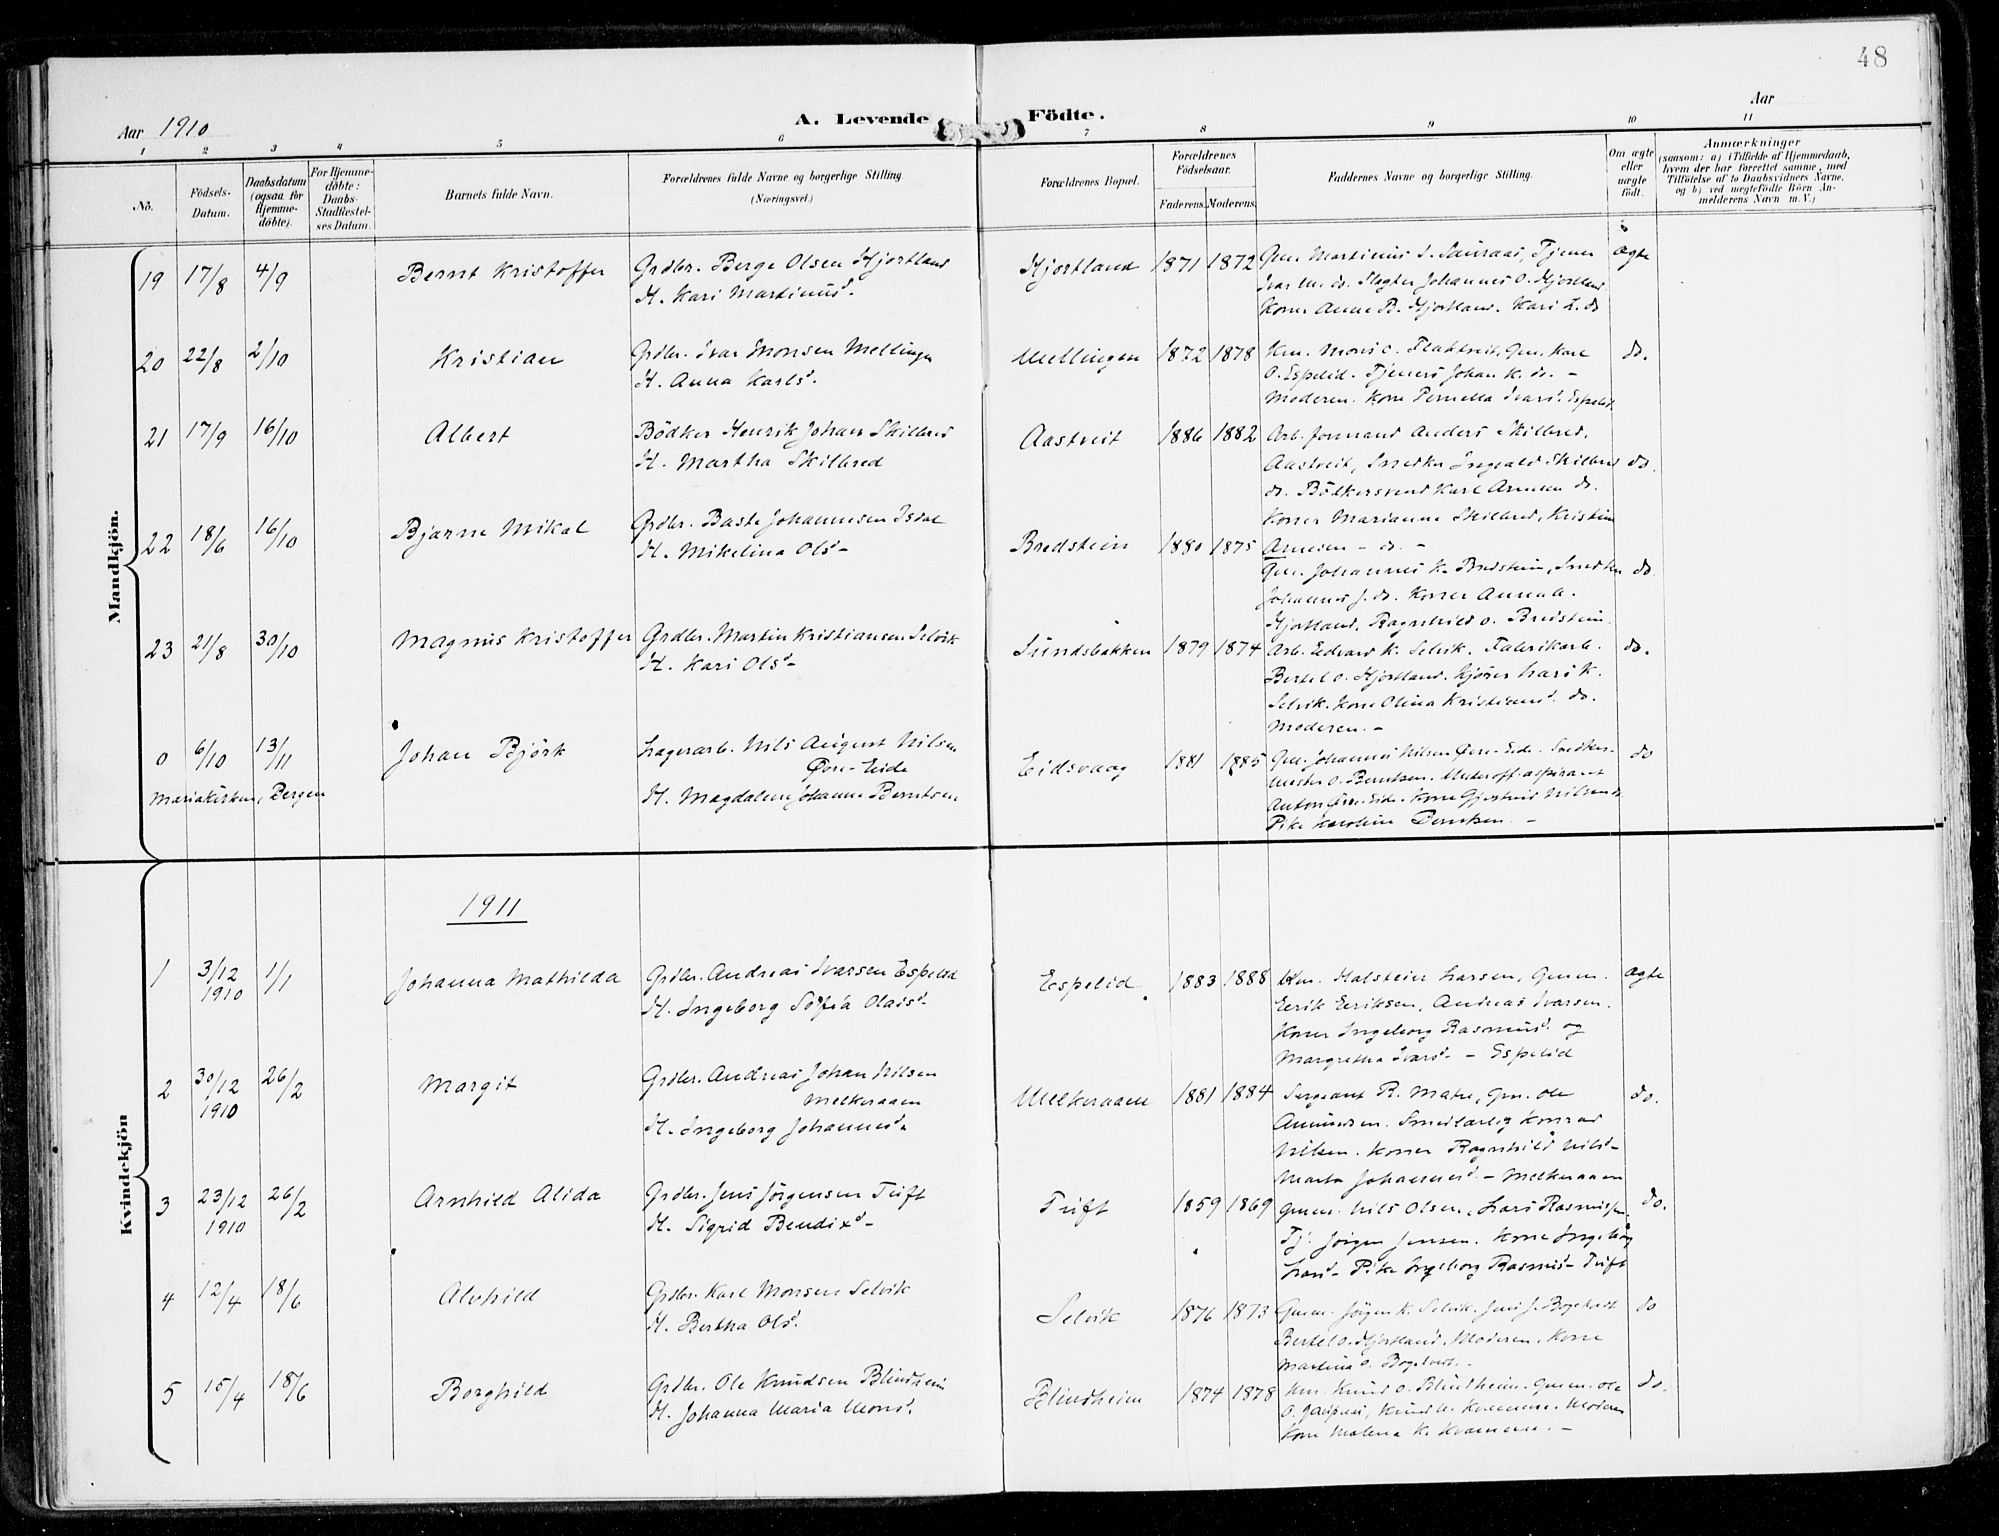 48
Aar 1910
A. Levende Födte.
Aar
1 2 3 4 5 6 7 8 9 10 11
No.
Födsels-Datum.
Daabsdatum (ogsaa for Hjemme-döbte).
For Hjemme-döbte: Daabs-Stadfæstel-ses Datum.
Barnets fulde Navn.
Forældrenes fulde Navne og borgerlige Stilling.
(Næringsvei.)
Forældrenes Bopæl.
Forældrenes Födselsaar.
Faderens. Moderens.
Faddernes Navne og borgerlige Stilling.
Om ægte eller uægte födt.
Anmærkninger
(saasom: a) i Tilfælde af Hjemmedaab, hvem der har forrettet samme, med Tilföielse af to Daabsvidners Navne, og b) ved uægtefödte Börn An-melderens Navn m. V.)
Mandkjön.
19 17/8 4/9 Bernt Kristoffer
Grdbr. Berge Olsen Hjortland
H. Kari Martinusd.
Hjortland 1871 1872
Gm. Martinus I. Tjener
Ivar M. do. Slagter Johannes O. Hjortland
Kone Anne B. Hjortland. Kari L. do
ægte
20 22/8 2/10 Kristian
Grdbr. Ivar Monsen Mellingen
H. Anna Karlsd.
Mellingen 1872 1878
Km. Mons C. Flaktveit, Gm. Karl
O. Espelid. Tjener Johan K. do. -
Moderen. Kone Pernella Ivarsd. Espelid
do.
21 17/9 16/10 Albert
Bödker Henrik Johan Skilbred
H. Martha Skilbred
Aastveit 1886 1882
Arb. formand Anders Skilbred,
Aastveit, Snedker Ingvald Skilbred
do. Bödkersvend Karl Arnesen do.
Koner Marianne Skilbred, Kristin
Arnesen - do. -
do.
22 18/6 16/10 Bjarne Mikal
Grdbr. Baste Johannesen Isdal
H. Mikelina Olsd-
Bredstein 1880 1875
Gm. Johannes K. Bredstein, Snedker
Johannes J. do. Koner Anna A.
Hjortland, Ragnhild O. Bredstein.
do.
23 21/8 30/10 Magnus Kristoffer
Grdbr. Martin Kristiansen Selvik
H. Kari Olsd-
Sundsbakken 1879 1874
Arb. Edvard K. Selvik. Fabrikarb.
Bertel O. Hjortland. Kjörer Lars K.
Selvik. Kone Olina Kristiansd. do.
Moderen. -
do.
0 6/10 13/11 Johan Björk
Mariakirken, Bergen
Lagerarb. Nils August Nilsen
Övre-Eide
H. Magdalene Johanne Berntsen
Eidsvaag 1881 1885
Gm. Johannes Nilsen Övre-Eide. Snedker-
mester O. Berntsen. Underoff. aspirant
Anton Övre-Eide. Kone Gjertrud Nilsen
Pike Karoline Berntsen -
do
Kvindekjön
1911
1 3/12 1910 1/1 Johanna Mathilda
Grdbr. Andreas Ivarsen Espelid
H. Ingeborg Sofia Olaisd-
Espelid 1883 1888
Km. Halstein Larsen, Gmm.
Eerik Eeriksen, Andreas Ivarsen.
Koner Ingeborg Rasmusd. og
Margretha Ivarsd - Espelid
ægte
2 30/12 1910 26/2 Margit
Grdbr. Andreas Johan Nilsen
Melkeraaen
H. Ingeborg Johannesd.
Melkeraaen 1881 1884
Sergeant R. Matre, Gm. Ole
Amundsen. Smedlærling Konrad
Nilsen. Koner Ragnhild Nilsd-
Marta Johannesd - Melkeraaen
do.
3 23/12 1910 26/2 Arnhild Alida
Grdbr. Jens Jörgensen Tuft
H. Sigrid Bendixd-
Tuft 1859 1869
Gmm. Nils Olsen, Lars Rasmussen,
Tj. Jörgen Jensen. Kone Ingeborg
Larsd - Pike Ingeborg Rasmusd - Tuft
do.
4 12/4 18/6 Alvhild
Grdbr. Karl Monsen Selvik
H. Bertha Olsd.
Selvik 1876 1873
Gmm. Jörgen K. Selvik. Jens J.
Bertel O. Hjortland. Moderen. Kone
Martina O.
do
5 15/4 18/6 Borghild
Grdbr. Ole Knudsen Blindheim
H. Johanna Maria Monsd.
Blindheim 1874 1878
Km. Knud O. Blindheim. Gmm. Ole
O. Knud Moderen
Kone Malena K. -
do.